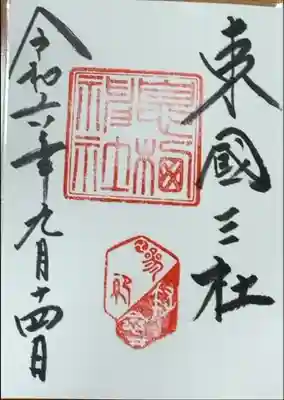 東國三社
息栖
神社
令和六年九月十四日